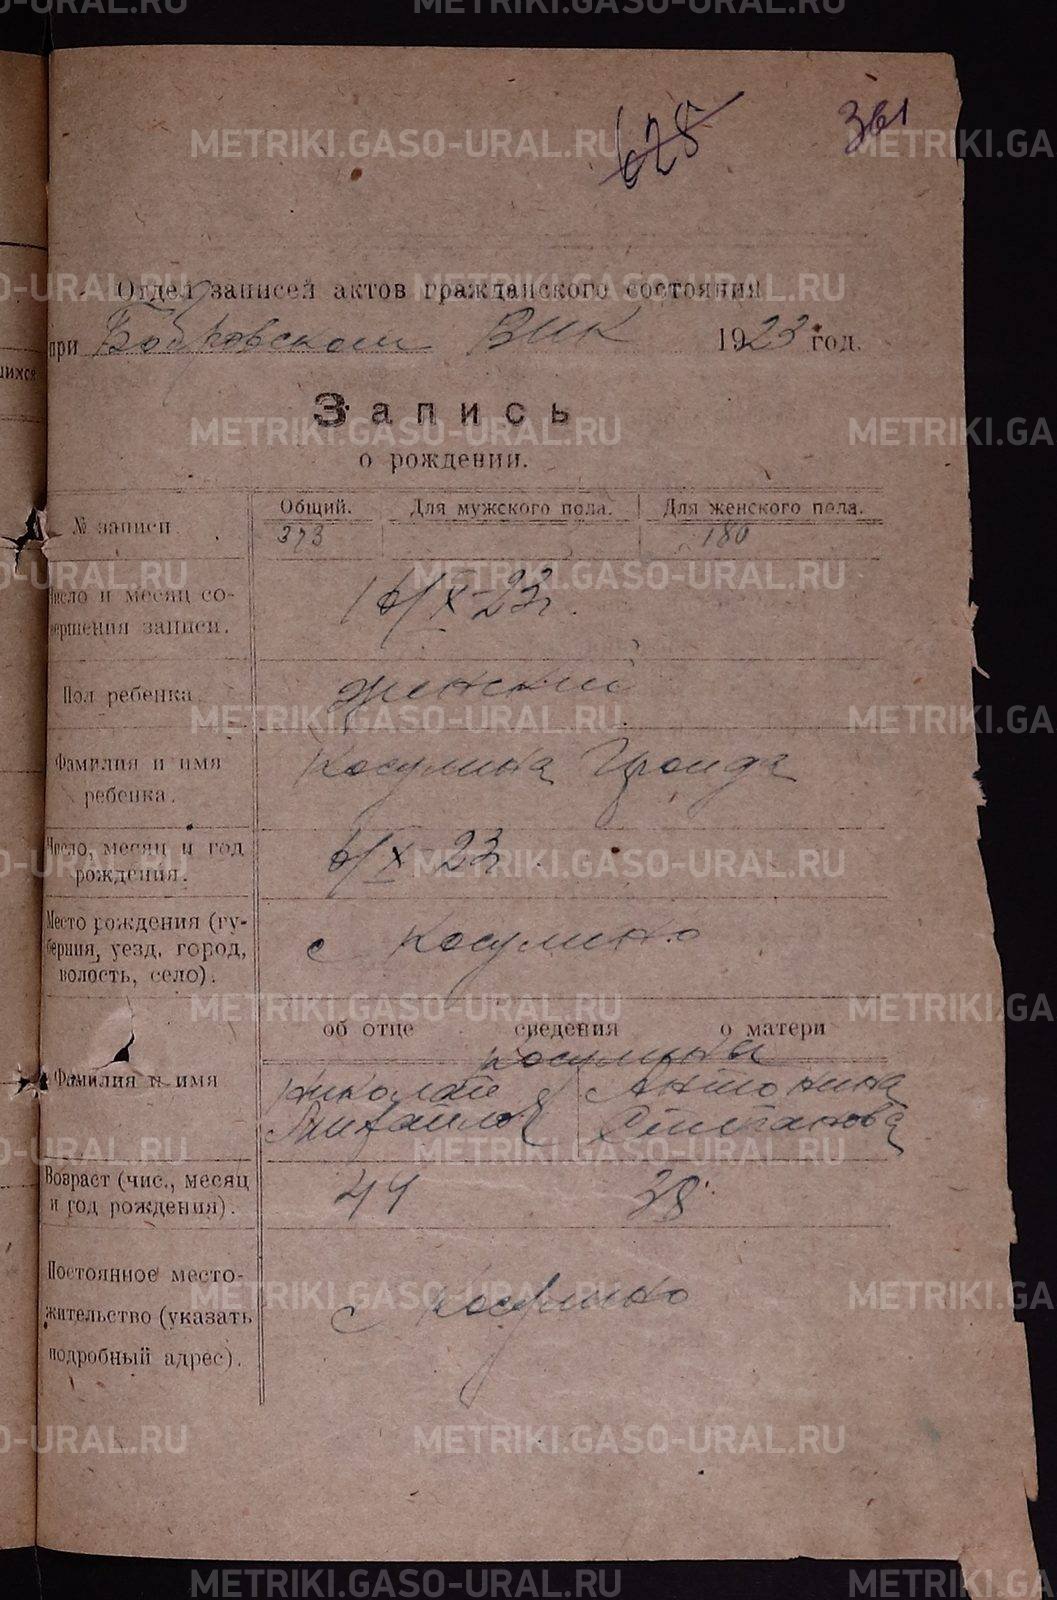 628
361
Отдел записей актов гражданского состояния
при Бобровском ВИК 1923 год.
Запись
о рождении.
№ записи
Общий. Для мужского пола. Для женского пола.
373 180
Число и месяц со-
вершения записи.
16/X-23г.
Пол ребенка.
женский
Фамилия и имя
ребенка.
Косулина Ираида
Число, месяц и год
рождения.
6/X-23г.
Место рождения (гу-
берния, уезд, город,
волость, село).
с Косулино
об отце сведения о матери
Косулины
Фамилия и имя
Николай Антонина
Михайлов Степанова
Возраст (чис., месяц
и год рождения).
44 38
Постоянное место-
жительство (указать
подробный адрес).
с Косулино
METRIKI.GASO-URAL.RU